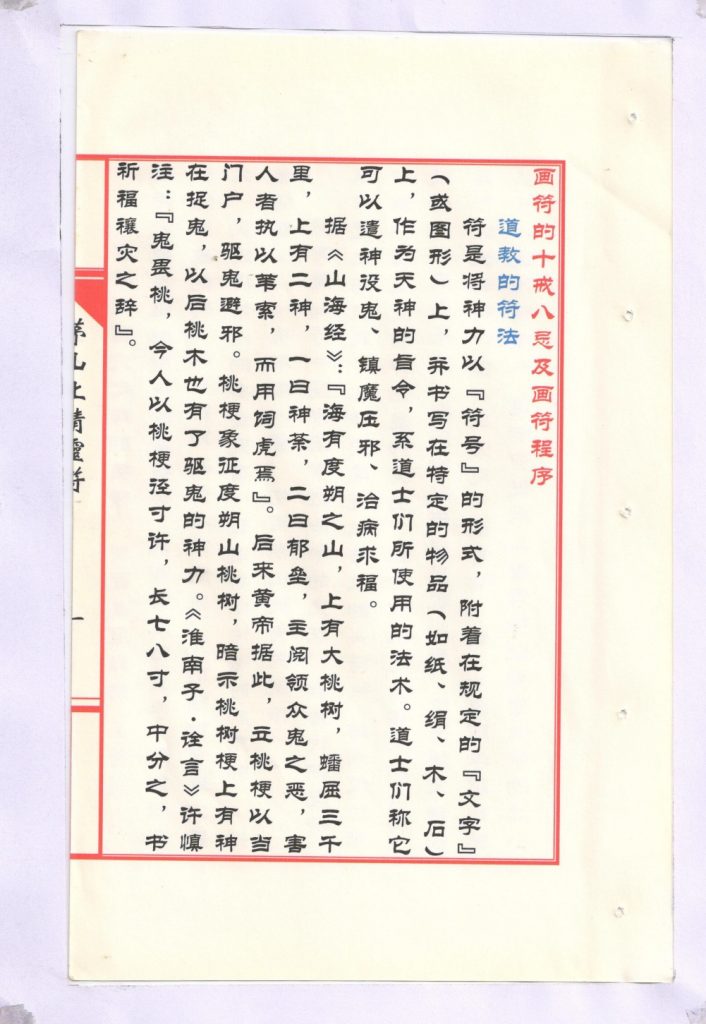 画符的十戒八忌及画符程序
道教的符法
符是将神力以『符号』的形式，附着在规定的『文字』
（或图形）上，并书写在特定的物品（如纸、绢、木、石）
上，作为天神的旨令，系道士们所使用的法术。道士们称它
可以遣神役鬼、镇魔压邪、治病求福。
据《山海经》：『海有度朔之山，上有大桃树，蟠屈三千
里，上有二神，一曰神荼，二曰郁垒，主阅领众鬼之恶，害
人者执以苇索，而用饲虎焉』。后来黄帝据此，立桃梗以当
门户，驱鬼避邪。桃梗象征度朔山桃树，暗示桃树梗上有神
在捉鬼，以后桃木也有了驱鬼的神力。《淮南子·诠言》许慎
注：『鬼畏桃，今人以桃梗径寸许，长七八寸，中分之，书
祈福禳灾之辞』。
茅山上清灵符
一